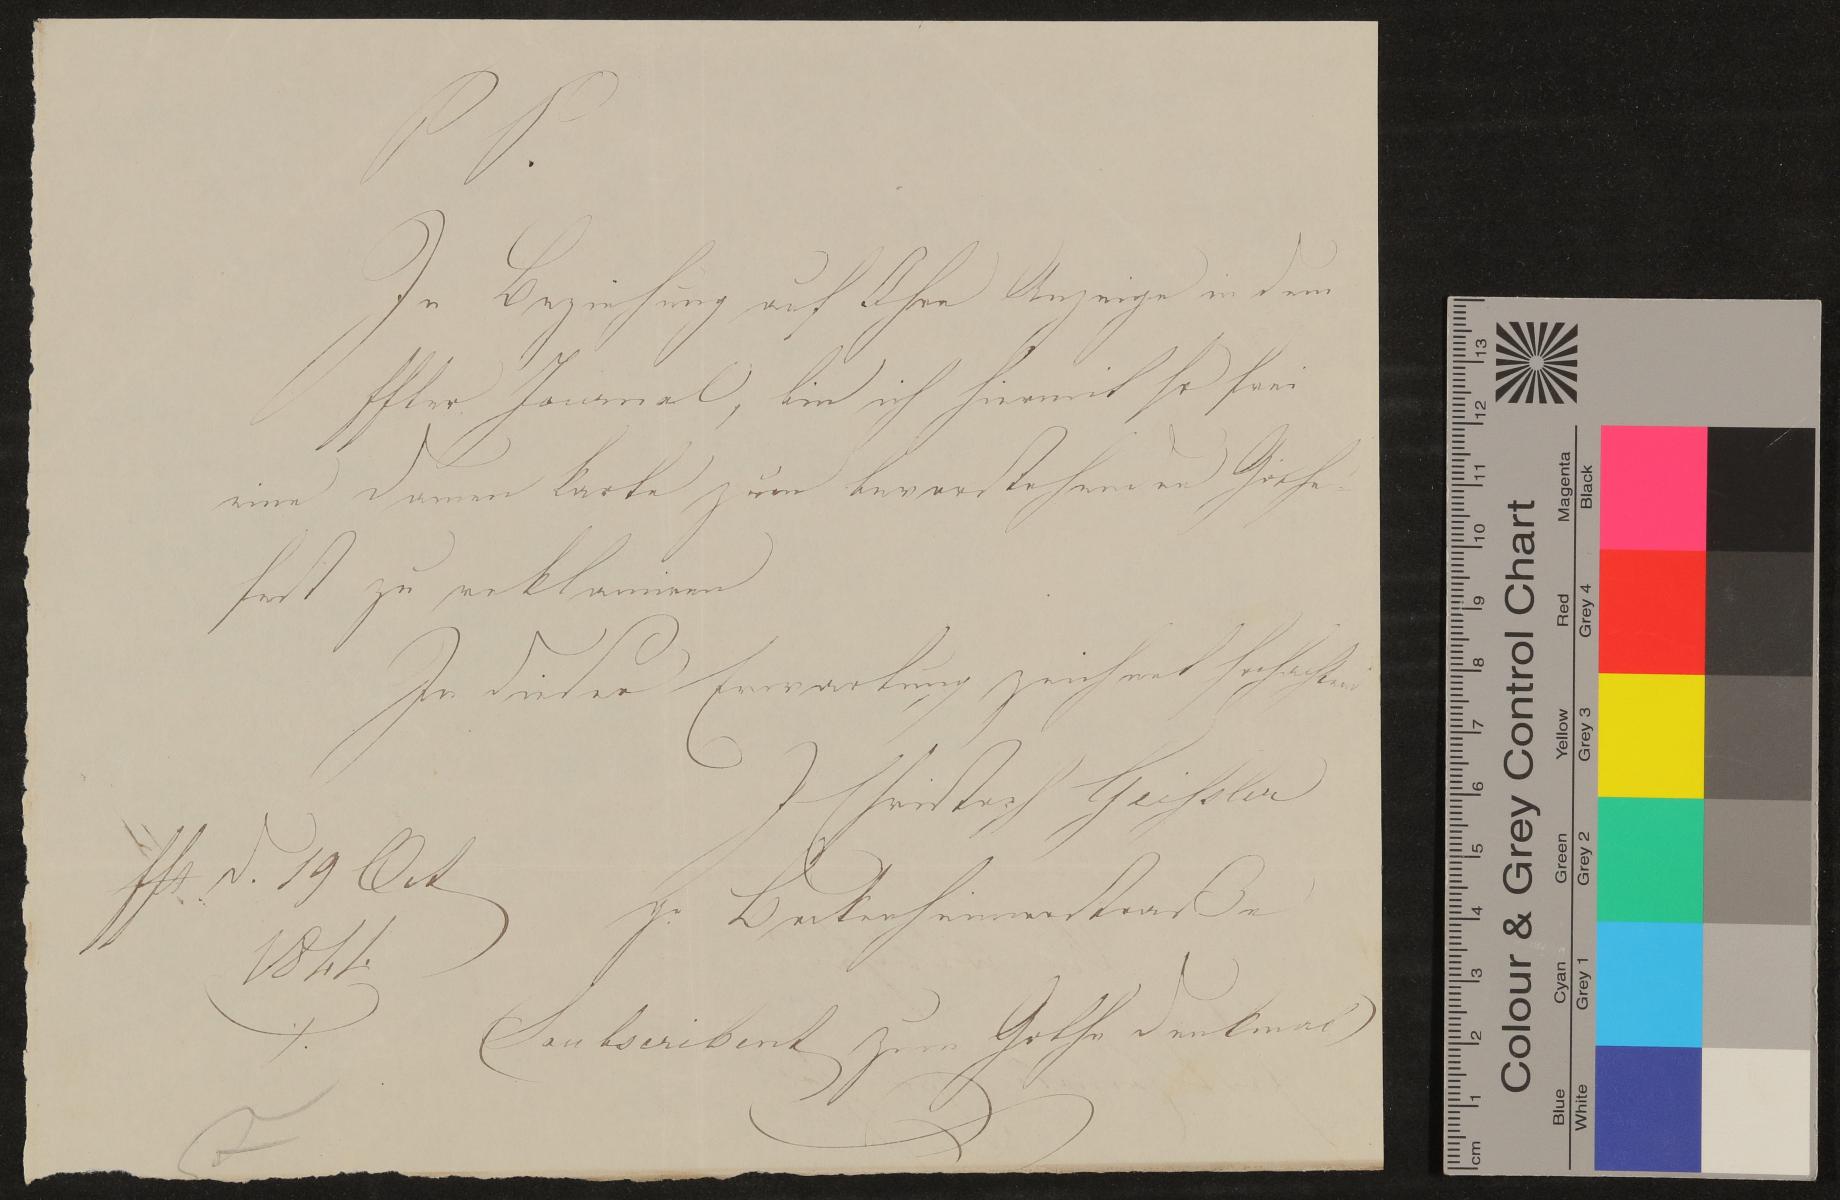 P P.
In Beziehung auf Ihre Anzeige in dem
Ffter Journal, bin ich hiermit so frei
eine Damen Karte zum bevorstehenden Göthe-
fest zu reklamiren
In dieser Erwartung zeichnet hochachtend
J Christoph Geissler
gr Bockenheimerstraße
Fft d. 19 Oct
1844
Soubscribent zum Göthe Denkmal
Colour & Grey Control Chart
Blue Cyan Green Yellow Red Magenta
White Grey 1 Grey 2 Grey 3 Grey 4 Black
cm 1 2 3 4 5 6 7 8 9 10 11 12 13